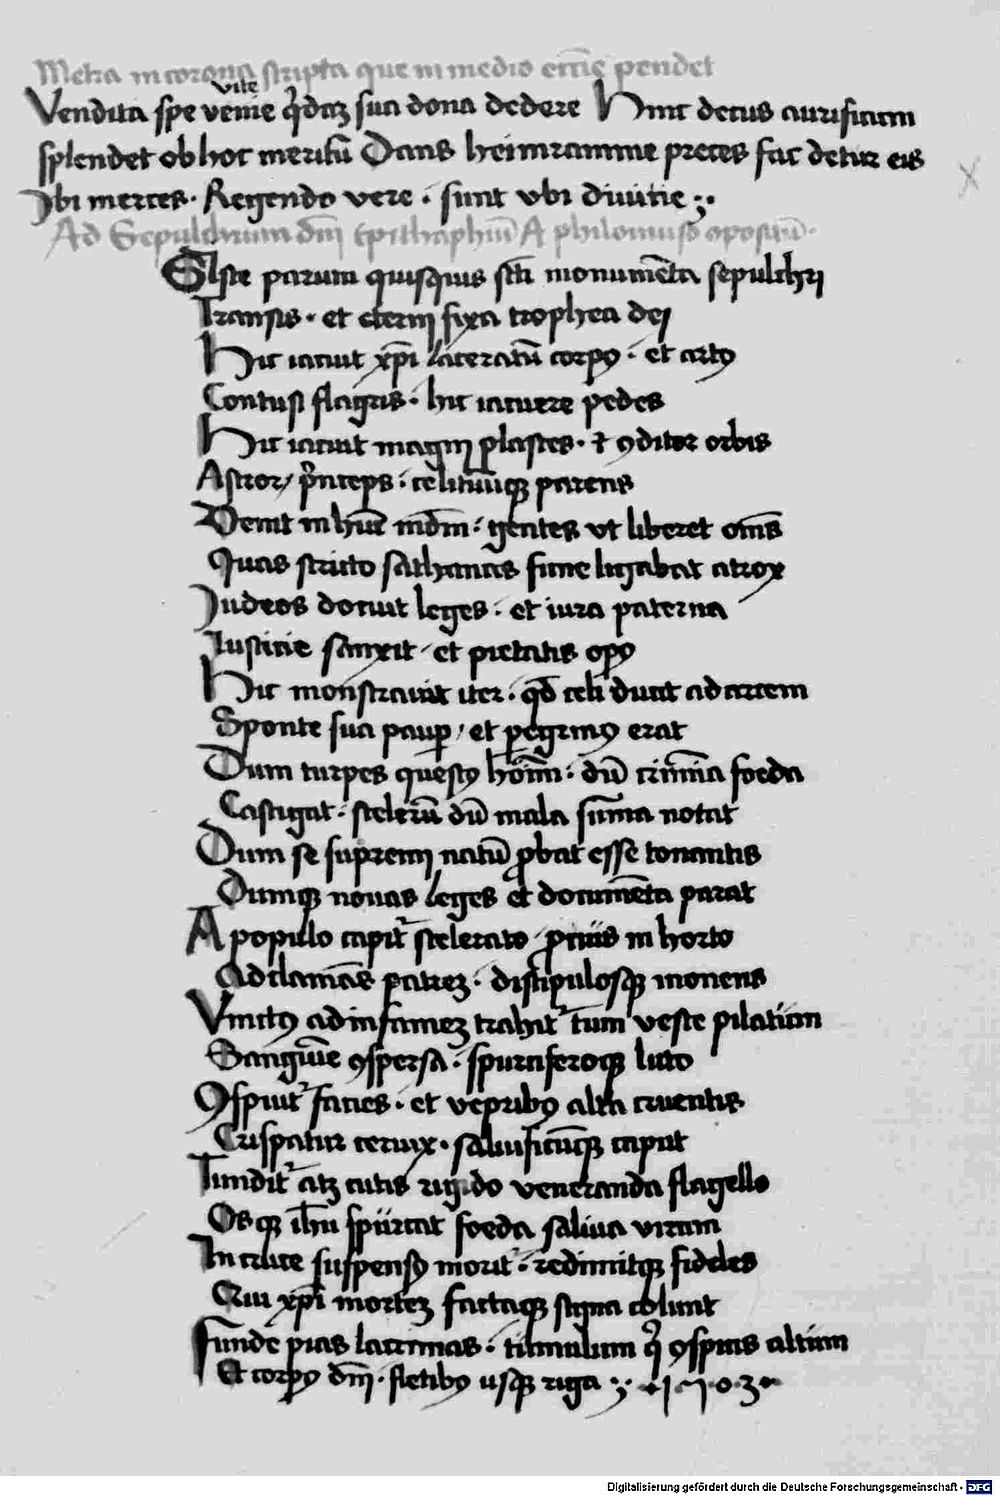 Metra in corona scripta que in medio ecclie pendet
vite
Vendita spe venie q̃daz sua dona dedere Hinc decus aurificum
splendet ob hoc meritũ Dans heimramme preces fac detur eis
Ibi merces. Regendo vere. sunt vbi diuitie ;.
Ad Sepulchrum dñi Epithaphiũ A philomuso
SIste parum quisquis sc̃ti monumẽta sepulchri
Transis. et eterni fixa trophea dei
Hic iacuit xp̃i laceratũ corpꝯ. et artꝯ
Contusi flagris. hic iacuere pedes
Hic iacuit magni plastes. ⁊ ꝯditor orbis
Astror, p̃nceps: celituũqꝫ parens
Venit in hũc mũdm: gentes vt liberet om̃s
Quas stricto sathanas fune ligabat atrox
Iudeos docuit leges. et iura paterna
Iusticie sanxit et pietatis opꝯ
Hic monstrauit iter. qđ celi ducat ad arcem
Sponte sua paup̱, et pegrinꝯ erat
Dum turpes questꝯ hoĩm: dũ crimĩa foeda
Castigat: scelerũ dũ mala sum̃a notat
Dum se supremi natũ ꝓbat esse tonantis
Dumqꝫ nouas leges et documẽta parat
A populo capit᷑ scelerato in horto
Ad clamãs patrez. discipulosqꝫ monens
Vinctꝯ ad infamez trahit᷑ tum veste pilatum
Sanguĩe ꝯspersa. spurciferoqꝫ luto
ꝯspuit᷑ facies. et vepribꝯ alta cruentis
Crispatur ceruix. saluificũqꝫ caput
Tundit᷑ atqꝫ cutis rigido veneranda flagello
Osqꝫ ihũ spurcat foeda saliua virum
In cruce suspensꝯ morit᷑. redimitqꝫ fideles
Qui xp̃i mortez factaqꝫ signa colunt
Funde pias lacrimas. tumulum q̃ ꝯspicis altum
Et corpꝯ dñi. fletibꝯ usqꝫ riga ;. 1503
Digitalisierung gefördert durch die Deutsche Forschungsgemeinschaft - DFG